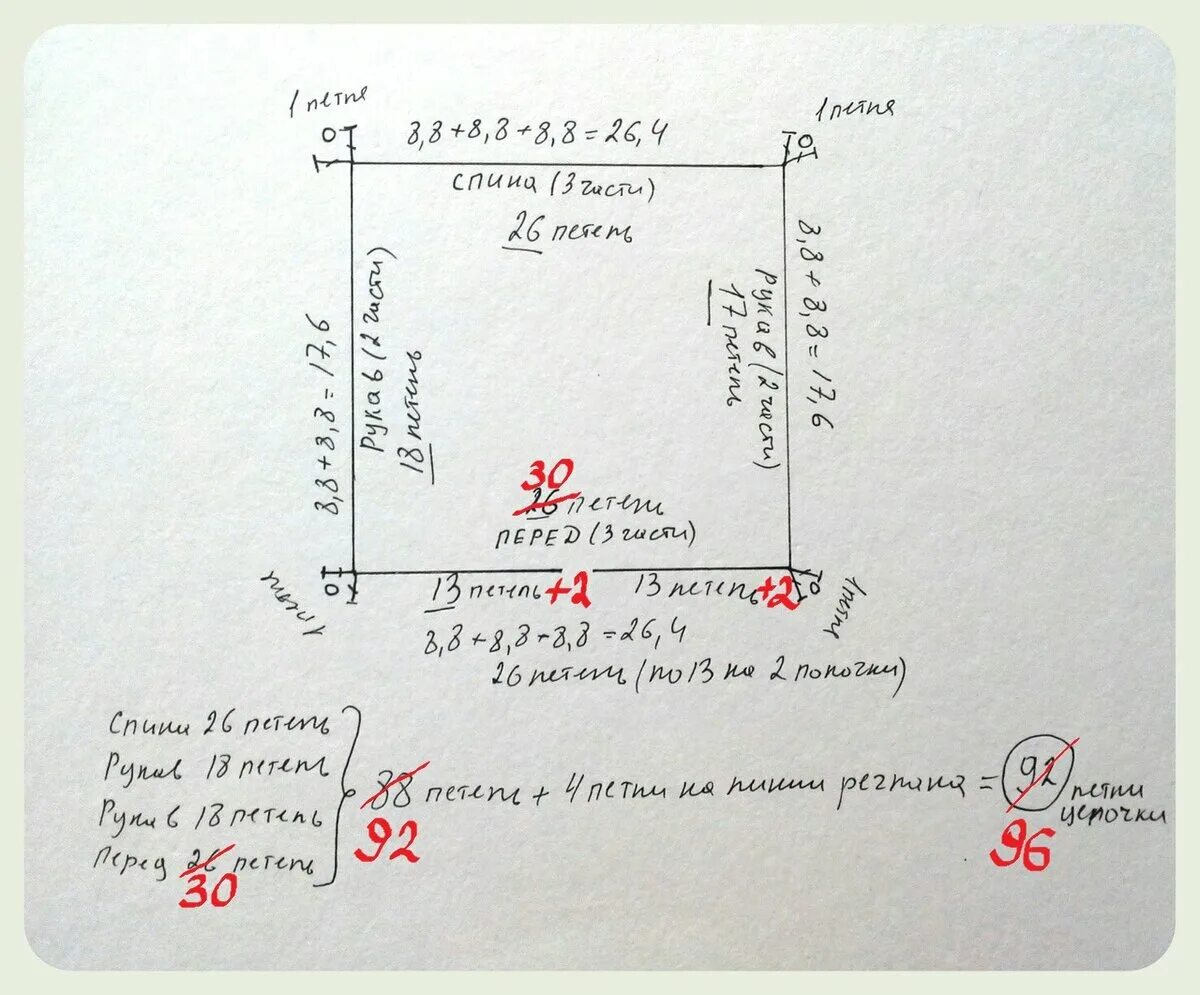 1 петля
1 петля
8,8+8,8+8,8=26,4
СПИНА (3 части)
26 петель
8,8+8,8=17,6
Рукав (2 части)
18 петель
8,8+8,8=17,6
Рукав (2 части)
17 петель
30
26 петель
ПЕРЕД (3 части)
13 петель+2 13 петель+2
1 петля
1 петля
8,8+8,8+8,8=26,4
26 петель (по 13 на 2 полочки)
Спина 26 петель
Рукав 18 петель
Рукав 18 петель
Перед 26 петель
30
88 петель + 4 петли на линии реглана = 92 петли
цепочки
92
96